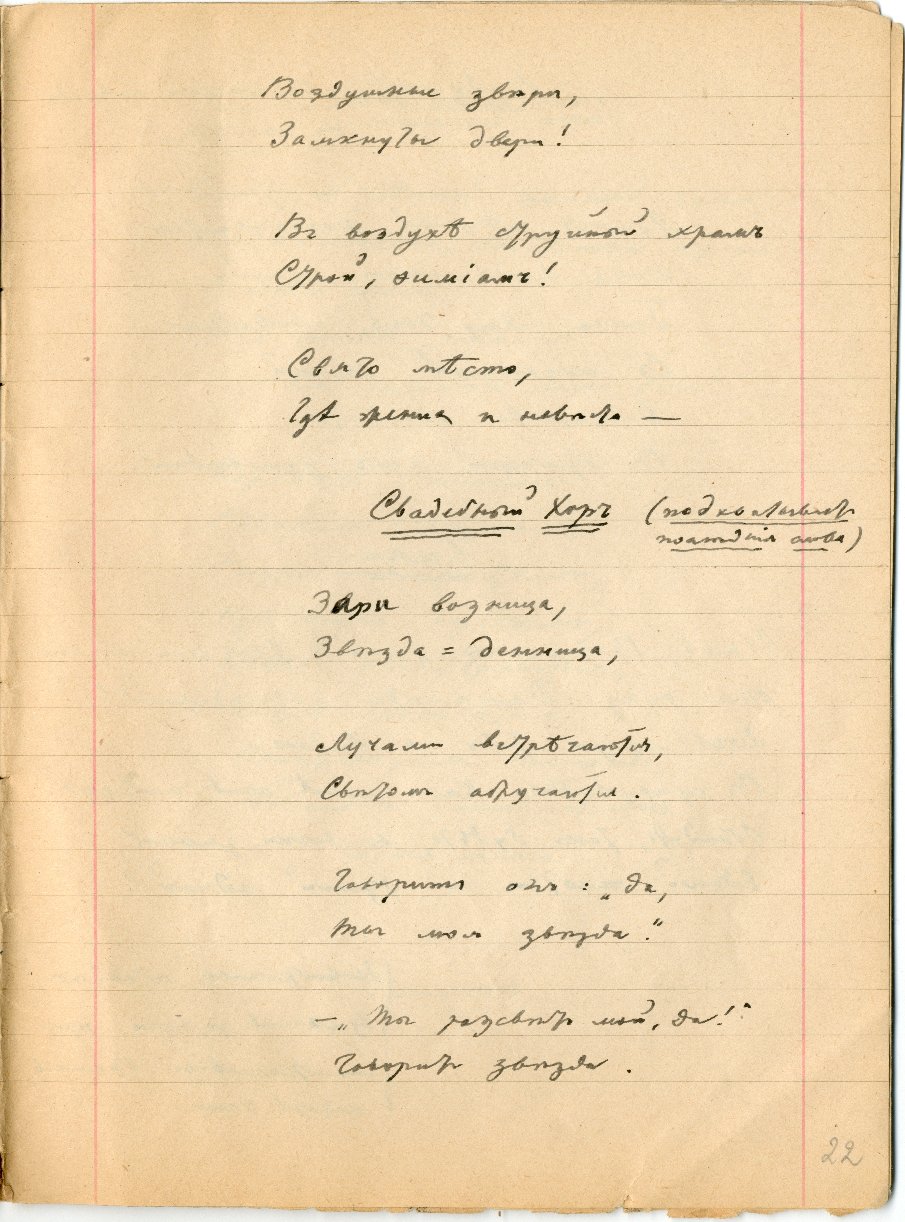 Воздушные звѣри,
Замкнуты двери!
Въ воздухѣ струйный храмъ
Строй, ѳиміамъ!
Свято мѣсто,
Гдѣ жениха и невѣста —
Свадебный Хоръ (подхватываетъ
слова)
Зари возница,
Звѣзда = денница,
Лучами встрѣчаются,
Свѣтомъ обручаются.
Говоритъ онъ: „да,
Ты моя звѣзда."
— „Ты разсвѣтъ мой, да!"
Говоритъ звѣзда.
22